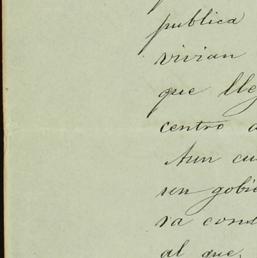 publica
vivian
que lle
centro a
Aun cu
sen gobie
va cons
al que,